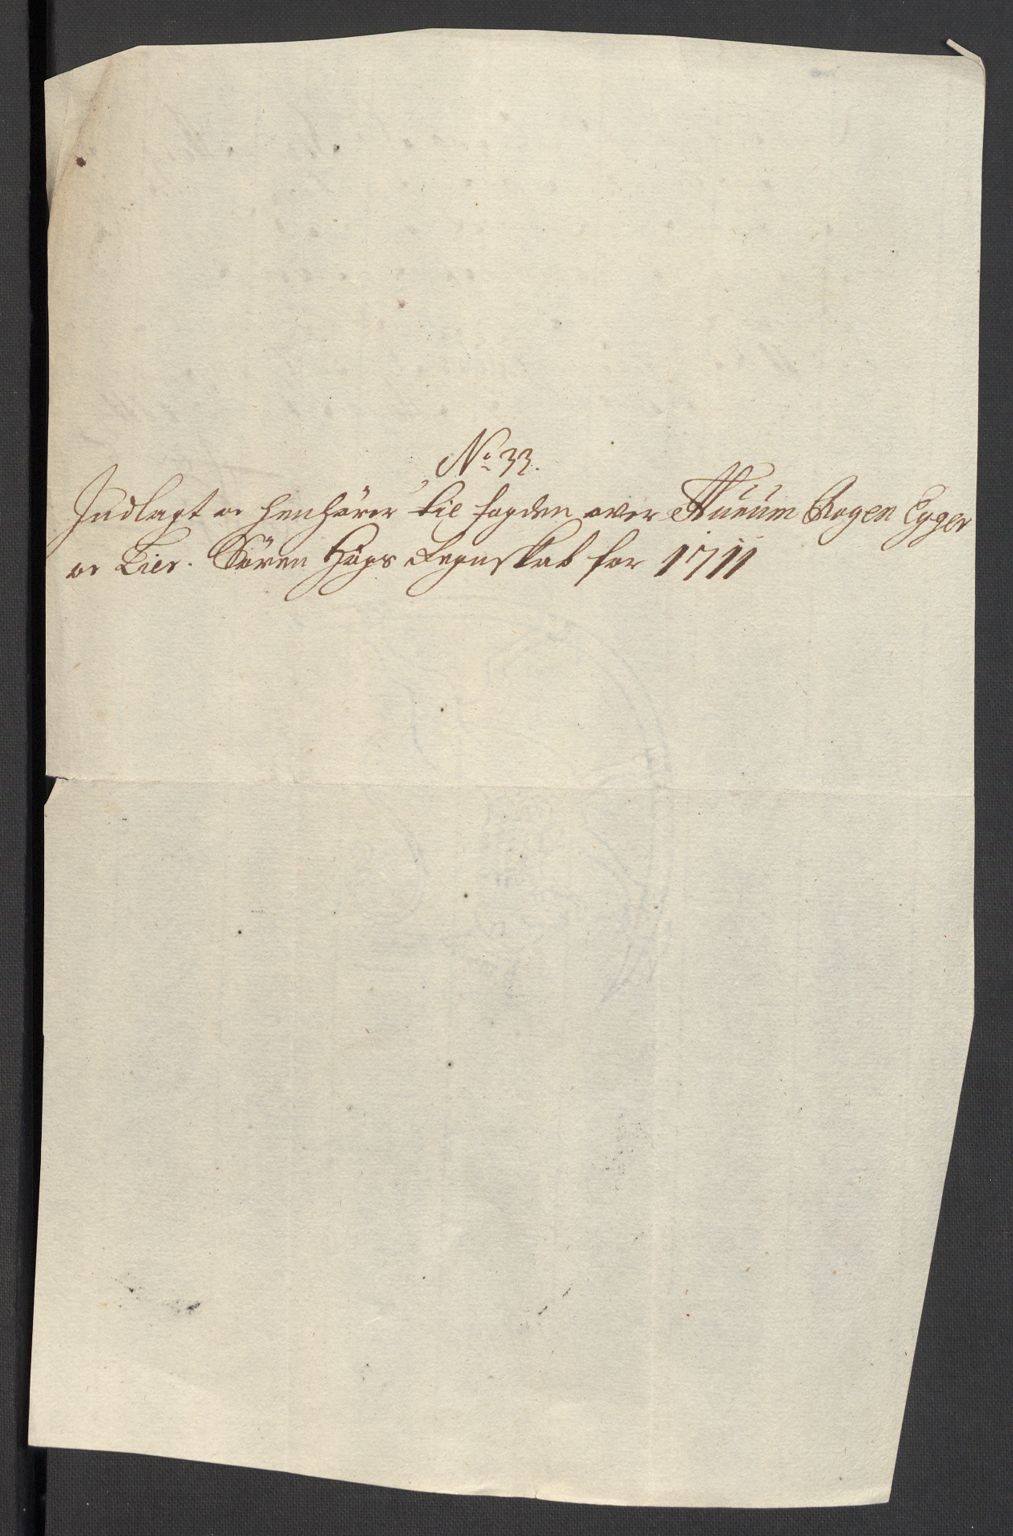 No 33.
Indlagt oc henhörer til fogden over Huurum Rogen Egger
oc Lier. Sören Hägs Regnskab for 1711